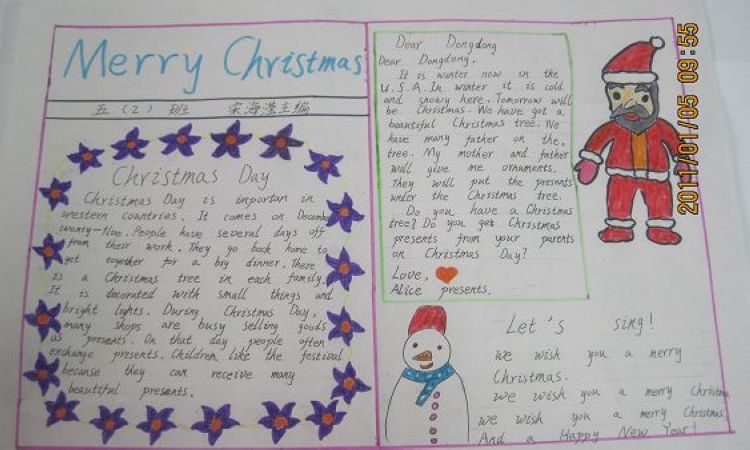 Merry Christmas
五(2)班 宋海滢主编
Christmas Day
Christmas Day is importan in
western countries. It comes on Decembe
twenty-five. People have several days off
from their work. They go back home to
get together for a big dinner. There
is a Christmas tree in each family.
It is decorated with small things and
bright lights. During Christmas Day,
many shops are busy selling goods
as presents. On that day people often
exchange presents. Children like the festival
because they can receive many
beautiful presents.
Dear Dongdong
Dear Dongdong,
It is winter now in the
U.S.A. In winter it is cold
and snowy here. Tomorrow will
be Christmas. We have got a
beautiful Christmas tree. We
have many father on the.
tree. My mother and father
will give me ornaments.
They will put the presents
under the Christmas tree.
Do you have a Christmas
tree? Do you get Christmas
presents from your parents
on Christmas Day?
Love,
Alice presents.
Let's sing!
we wish you a merry
Christmas.
we wish you a merry Christma
we wish you a merry Christmas
And a Happy New Year!
2011/01/05 09:55